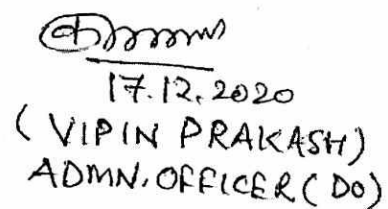 17.12.2020
(VIPIN PRAKASH)
ADMN. OFFICER (DO)